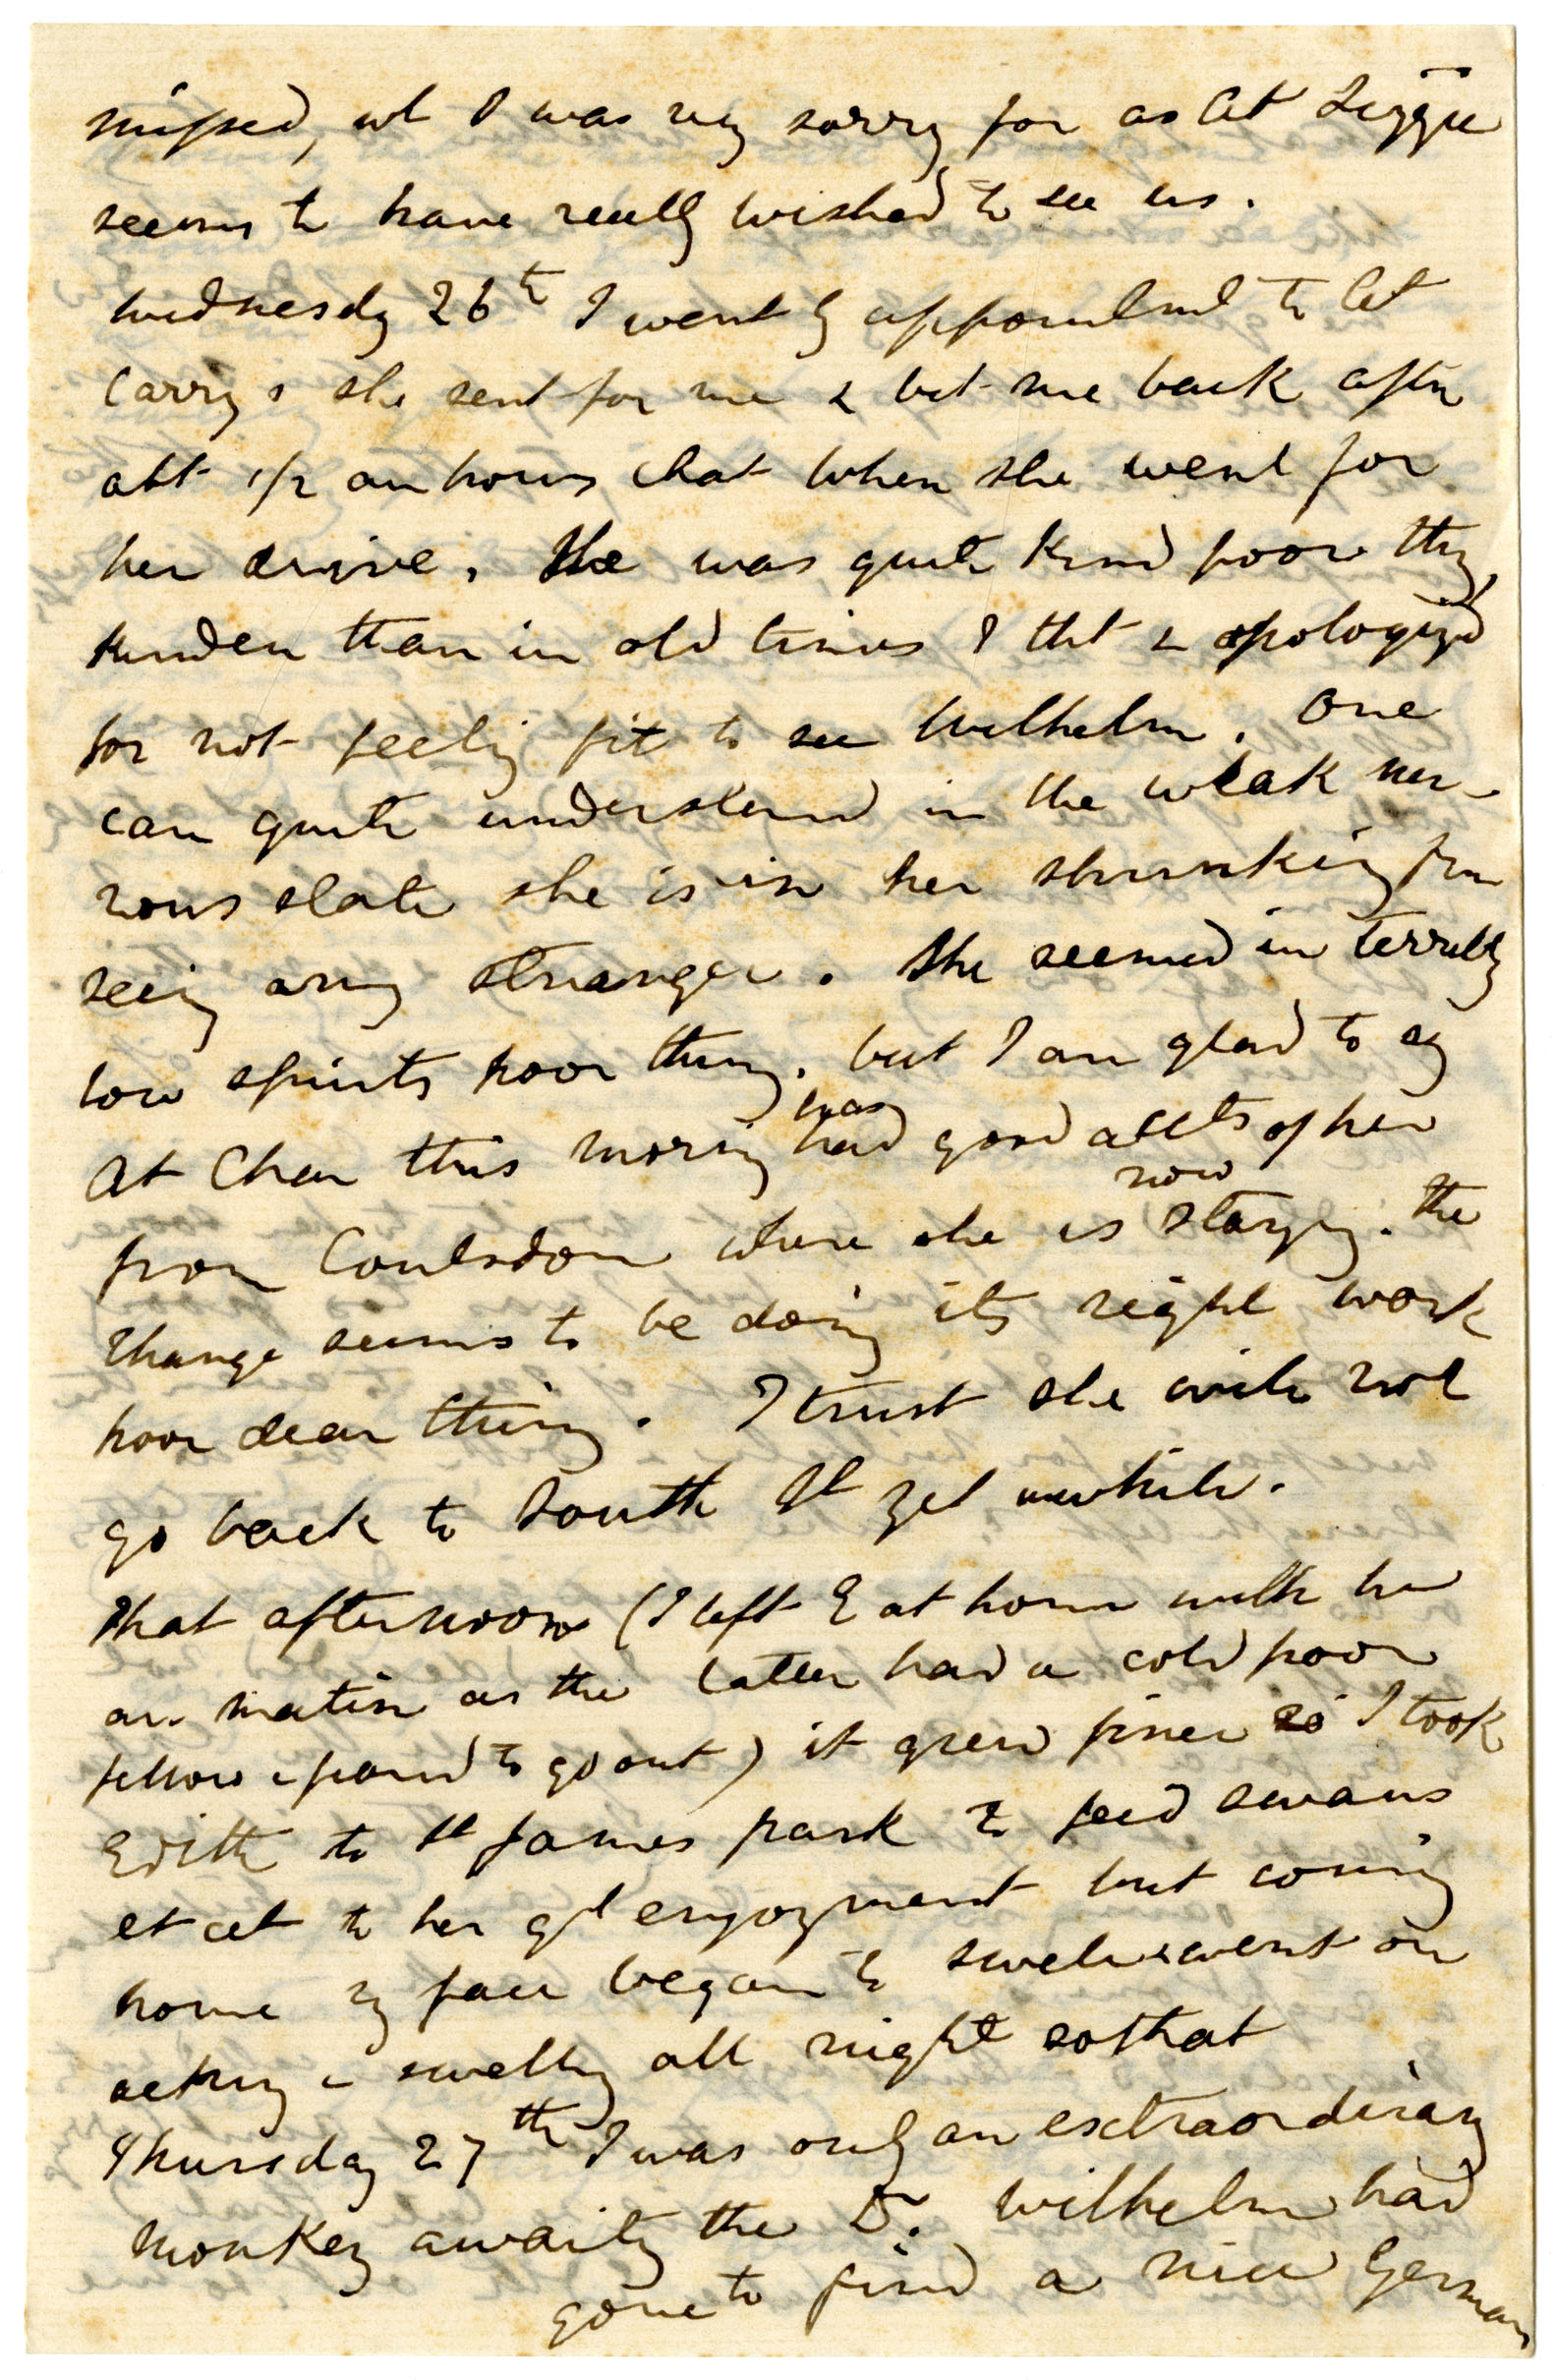 missed, wh I was very sorry for as At Lizzie
seems to have really wished to see us.
Wednesday 26th I went by appointmt to At
Carry's she sent for me & bt me back after
abt 1/2 an hours chat when she went for
her drive. She was quite kind poor thg,
kinder than in old times I tht & apologized
for not feeling fit to see Wilhelm. One
can quite understand in the weak ner-
vous state she is in her shrinking from
seeing any stranger. She seemed in terribly
low spirits poor thing. but I am glad to say
At Char this morning has had good accts of her
from Coulsdon where she is now staying. The
change seems to be doing its right work
poor dear thing. I trust she will not
go back to South St yet awhile.
That afternoon (I left E at home with
as the latter had a cold poor
fellow & feared to go out) it grew finer so I took
Edith to St James park to feed swans
et cet to her gt enjoyment but coming
home my face began to swell & went on
aching & swelling all night so that
Thursday 27th I was only an extraordinary
monkey awaiting the Dr. Wilhelm had
gone to find a nice German